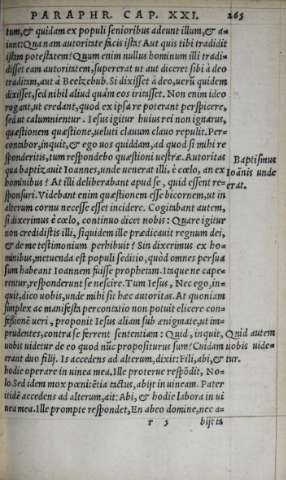 PARAPHR. CAP. XXI. 265
tum, & quidam ex populi senioribus adeunt illum, & a=
iunt: Quanam autoritate facis ista? Aut quis tibi tradidit
istam potestatem? Quum enim nullus hominum illi tradi=
disset eam autoritatem, supererat ut aut diceret sibi à deo
traditam, aut à Beelzebub. Si dixisset à deo, uerū quidem
dixisset, sed nihil aliud quàm eos irritasset. Non enim ideo
rogant, ut credant, quod ex ipsa re poterant perspicere,
sed ut calumnientur. Iesus igitur huius rei non ignarus,
quæstionem quæstione, ueluti clauum clauo repulit. Per=
contabor, inquit, & ego uos quiddam, ad quod si mihi re
sponderitis, tum respondebo quæstioni uestræ. Autoritas
qua baptizauit Ioannes, unde uenerat illi, è cœlo, an ex
hominibus? At illi deliberabant apud se, quid essent re=
sponsuri. Videbant enim quæstionem esse bicornem, ut in
alterum cornu necesse esset incidere. Cogitabant autem,
si dixerimus è cœlo, continuo dicet nobis: Quare igitur
non credidistis illi, siquidem ille prædicauit regnum dei,
& de me testimonium perhibuit? Sin dixerimus ex ho=
minibus, metuenda est populi seditio, quòd omnes persua
sum habeant Ioannem fuisse prophetam. Itaque ne cape=
rentur, responderunt se nescire. Tum Iesus, Nec ego, in=
quit, dico uobis, unde mihi sit hæc autoritas. At quoniam
simplex ac manifesta percontatio non potuit elicere con=
fessionē ueri, proponit Iesus aliam sub ænigmate, ut im=
prudentes, contra se ferrent sententiam: Quid, inquit,
uobis uidetur de eo quod nūc propositurus sum? Cuidam
erant duo filij. Is accedens ad alterum, dixit: Fili, abi, &
hodie operare in uinea mea. Ille proterue respōdit, No=
lo. Sed idem mox pœnitētia tactus, abijt in uineam. Pater
itidē accedens ad alterum, ait: Abi, & hodie labora in ui
nea mea. Ille prompte respondet, En abeo domine, nec a=
r 3 bijt ta
Baptismus
Ioānis unde
erat.
Quid autem
uobis uide=
tur.